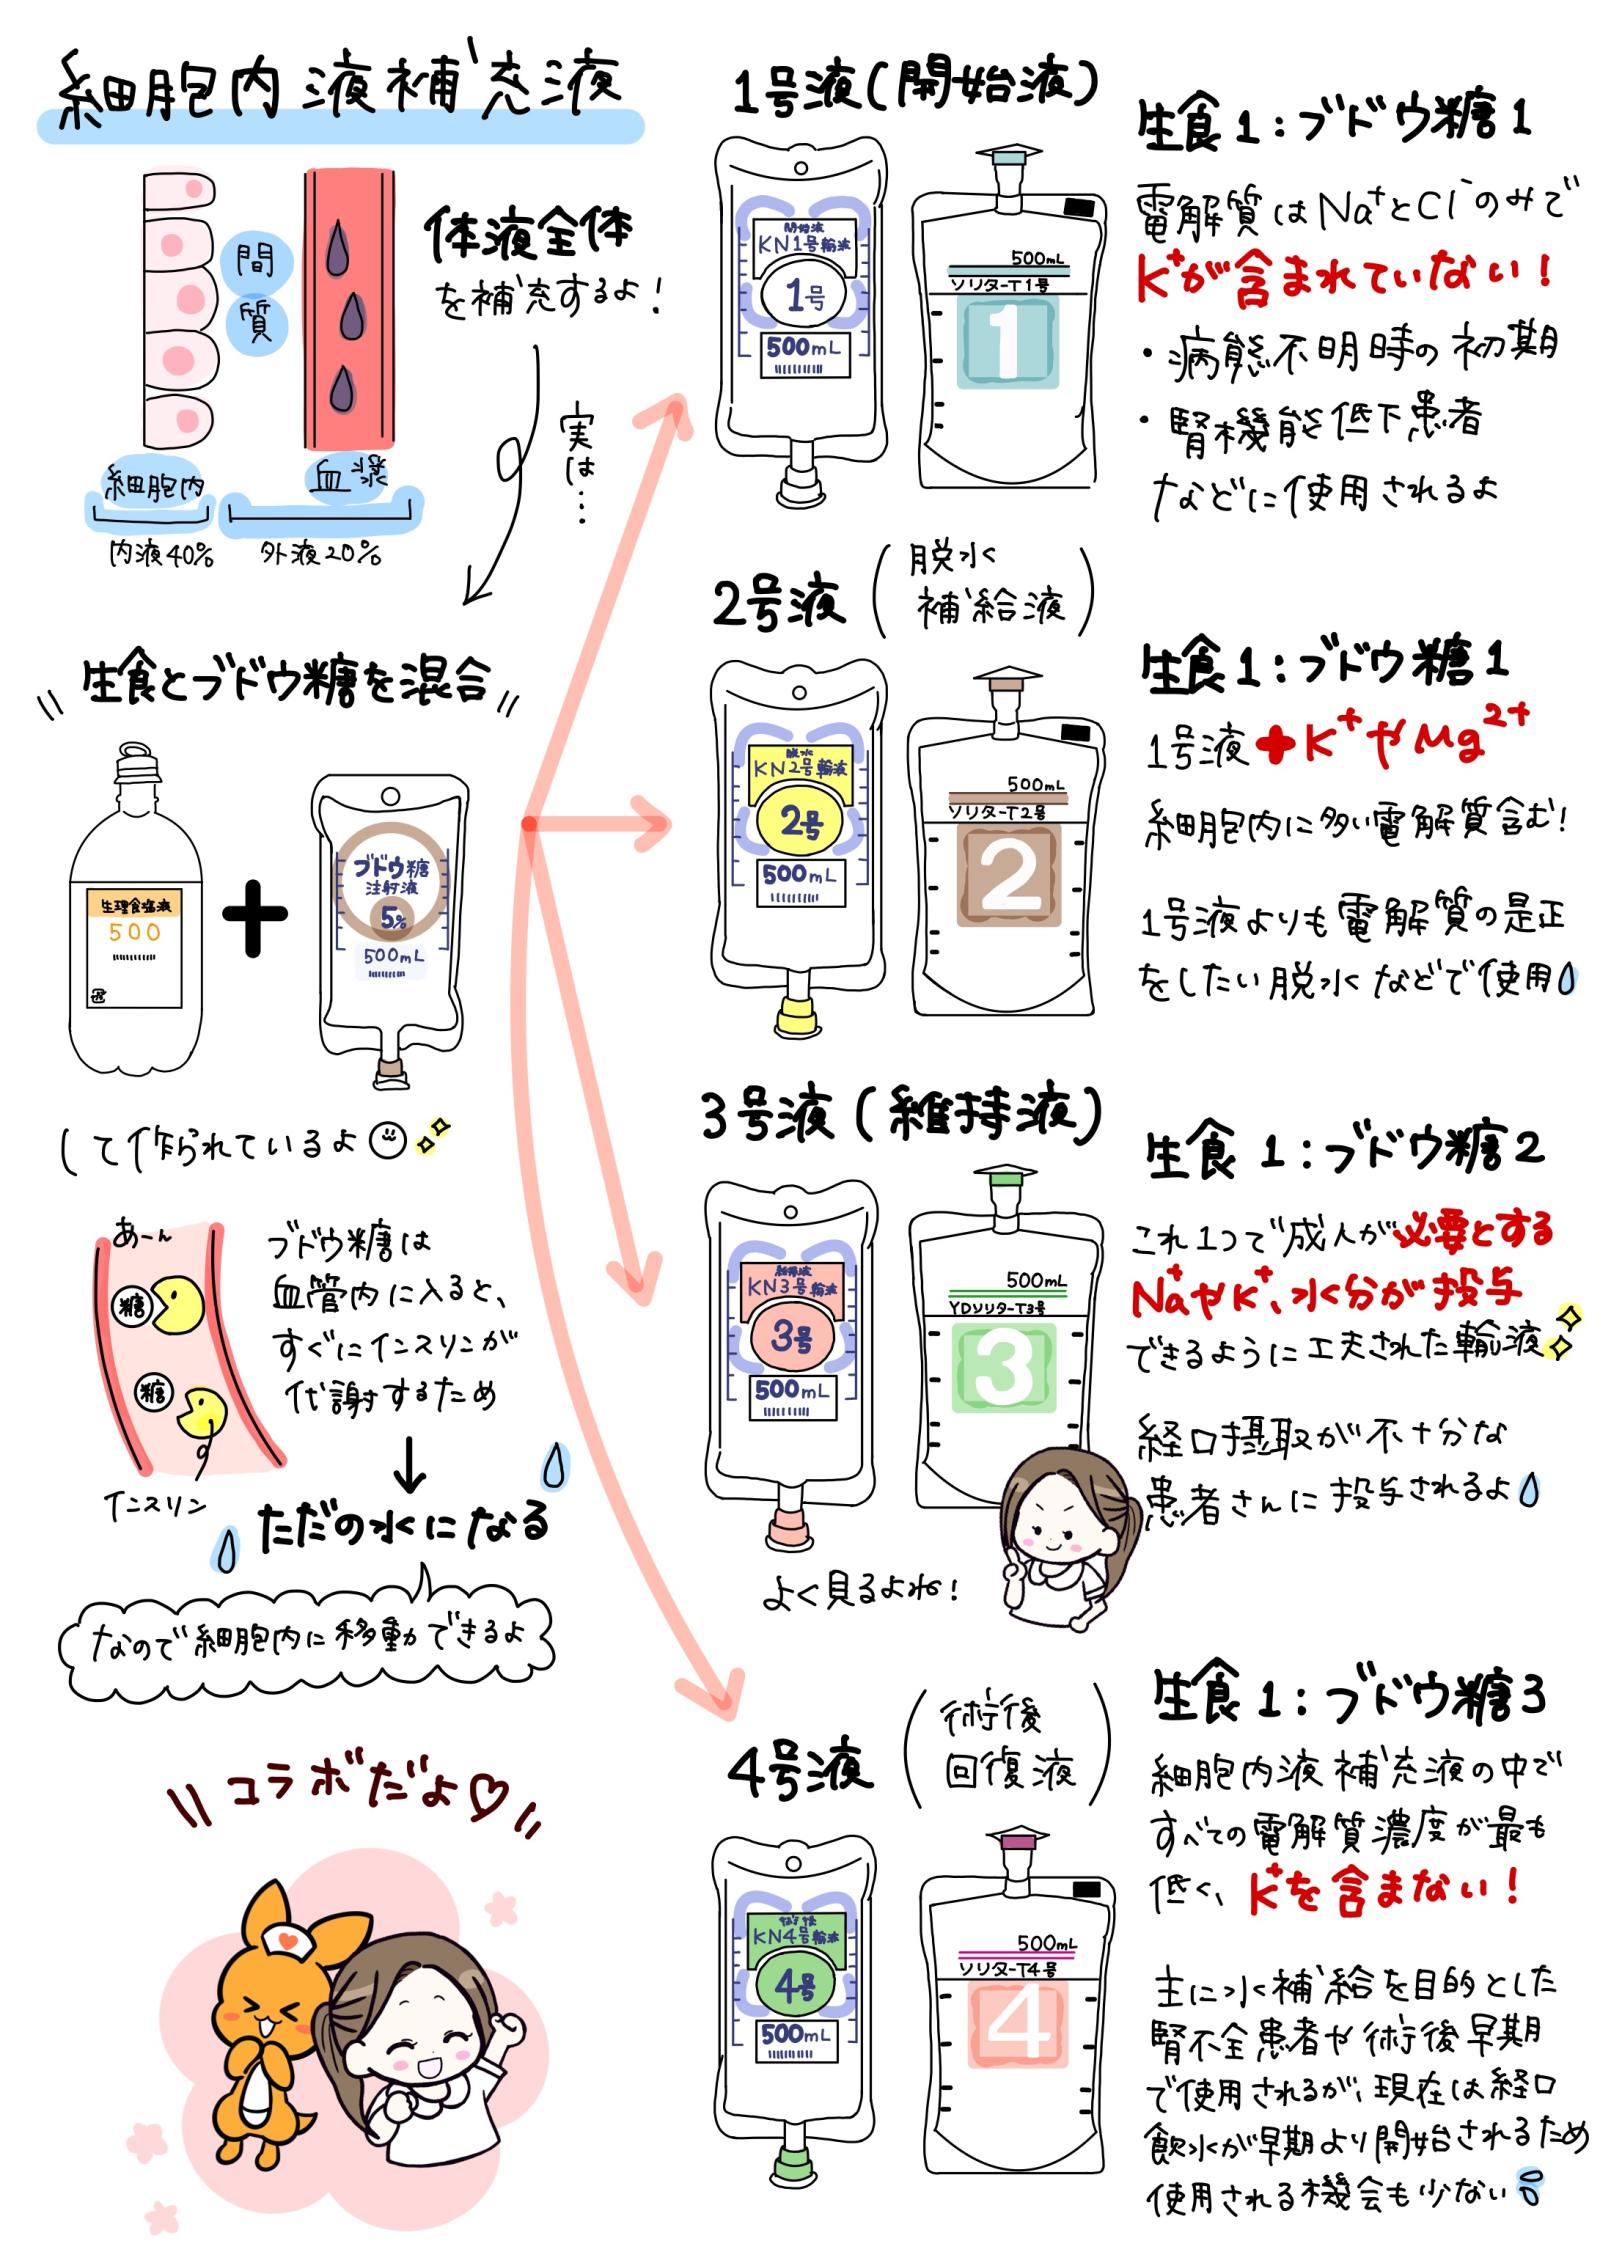 細胞内液補充液
間
質
体液全体
を補充するよ!
細胞内
血漿
内液40%
外液20%
実は…
生食とブドウ糖を混合
生理食塩液
500
ブドウ糖
注射液
5%
500mL
して作られているよ
あーん
糖
糖
インスリン
ブドウ糖は
血管内に入ると、
すぐにインスリンが
代謝するため
ただの水になる
なので細胞内に移動できるよ
コラボだよ♡
1号液(開始液)
開始液
KN1号輸液
1号
500mL
500mL
ソリターT1号
1
生食1:ブドウ糖1
電解質はNa⁺とCl⁻のみで
K⁺が含まれていない!
・病態不明時の初期
・腎機能低下患者
などに使用されるよ
2号液(脱水
補給液)
脱水
KN2号輸液
2号
500mL
500mL
ソリターT2号
2
生食1:ブドウ糖1
1号液+K⁺やMg²⁺
細胞内に多い電解質含む!
1号液よりも電解質の是正
をしたい脱水などで使用
3号液(維持液)
維持液
KN3号輸液
3号
500mL
500mL
YDソリターT3号
3
よく見るよね!
生食1:ブドウ糖2
これ1つで成人が必要とする
Na⁺やK⁺、水分が投与
できるように工夫された輸液
経口摂取が不十分な
患者さんに投与されるよ
4号液(術後
回復液)
術後
KN4号輸液
4号
500mL
500mL
ソリターT4号
4
生食1:ブドウ糖3
細胞内液補充液の中で
すべての電解質濃度が最も
低く、K⁺を含まない!
主に水補給を目的とした
腎不全患者や術後早期
で使用されるが、現在は経口
飲水が早期より開始されるため
使用される機会も少ない